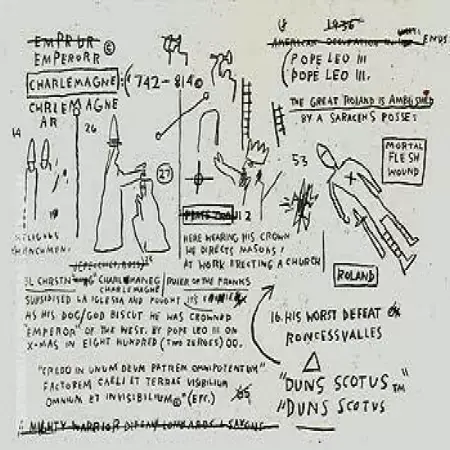 EMPRUR
EMPERORR ©
CHARLEMAGNE: (742-814©
CHRLEMAGNE
AR
14
26
27
19
HERE WEARING HIS CROWN
HE DIRECTS MASONS/
AT WORK ERECTING A CHURCH
CHRSTN CHARLEMANEG
CHARLEMAGNE
RULER OF THE FRANKS
SUBSIDISED LA IGLESIA AND FOUGHT ITS
AS HIS DOG/GOD BISCUT HE WAS CROWNED
"EMPEROR" OF THE WEST. BY POPE LEO III ON
X-MAS IN EIGHT HUNDRED (TWO ZEROES) 00.
"CREDO IN UNUM DEUM PATREM OMNIPOTENTUM"
FACTOREM CAELI ET TERRAE VISIBILIUM
OMNIUM ET INVISIBILIUM©" (ETC.)
MIGHTY WARRIOR DEFEAT LOMBARDS & SAXONS
1936
AMERICAN OCCUPATION ENDS
(POPE LEO III
POPE LEO III.
THE GREAT ROLAND IS AMBUSHED
BY A SARACENS POSSE:
53
MORTAL
FLESH
WOUND
ROLAND
16. HIS WORST DEFEAT
RONCESSVALLES
"DUNS SCOTUS™
"DUNS SCOTUS